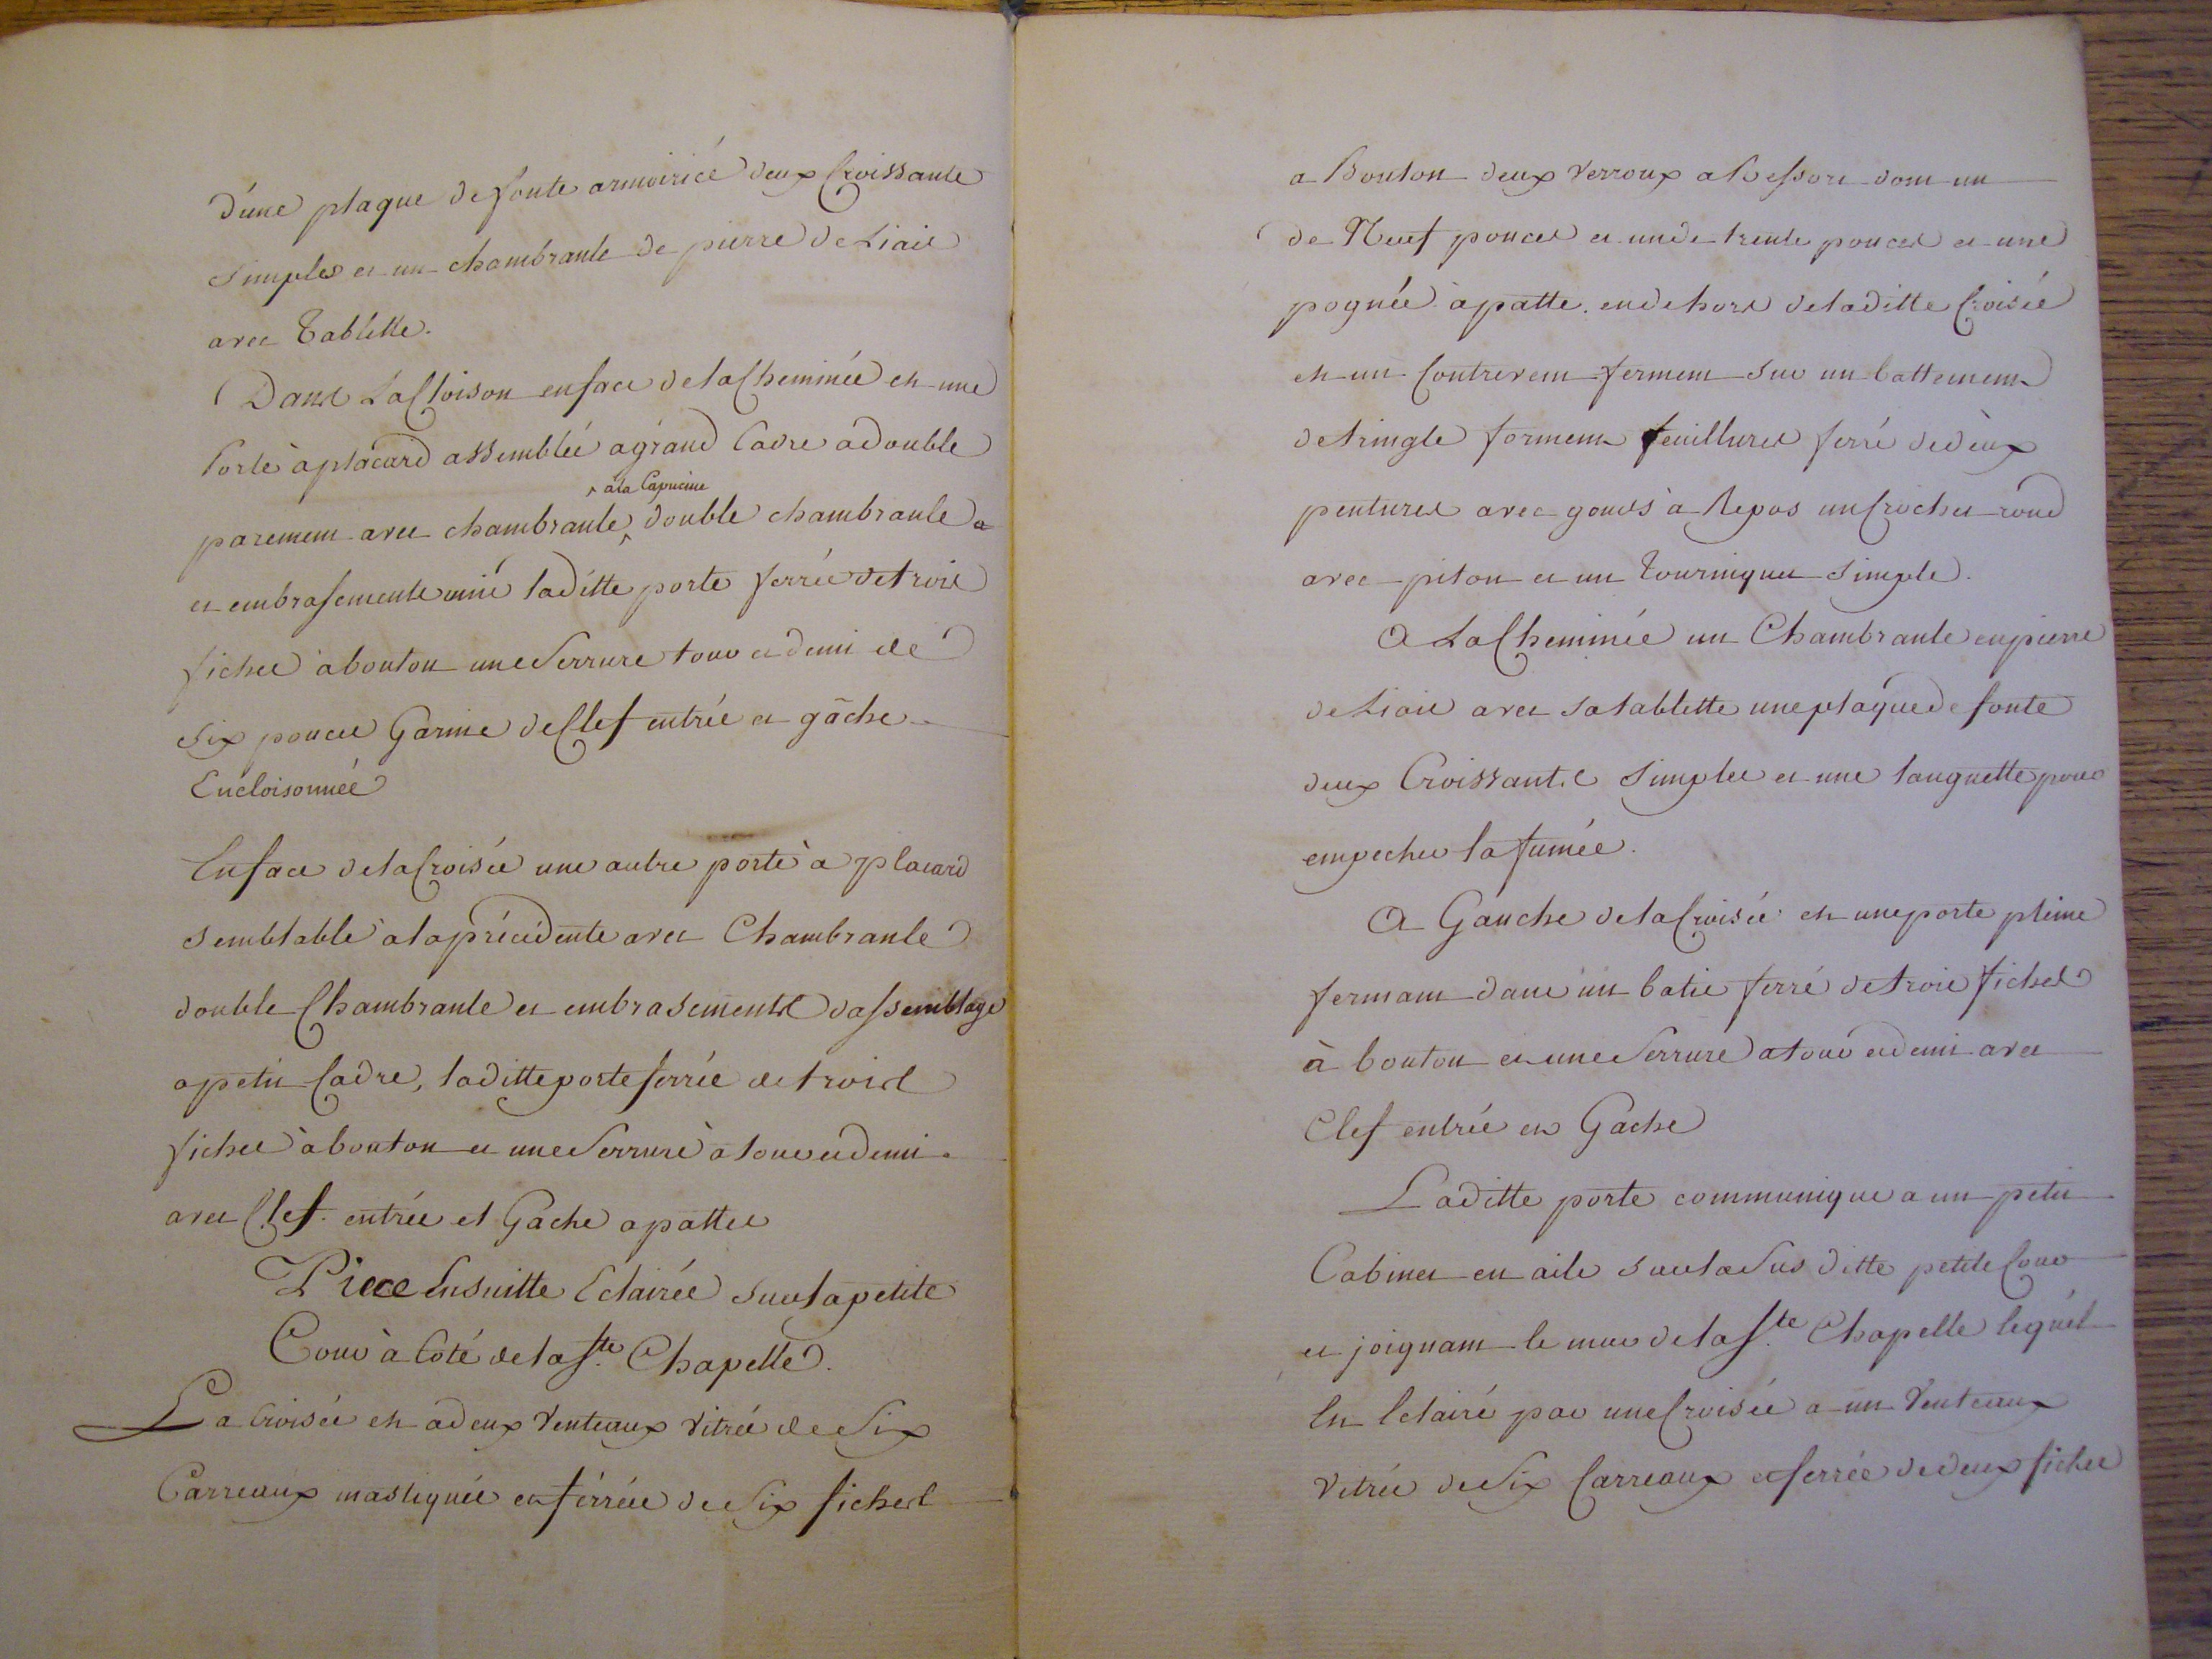 d'une plaque de fonte armoiriée deux Croissants
Simples et un chambranle de pierre de Liais
avec Tablette.
Dans La Cloison en face de la Cheminée est une
Porte à placard assemblée a grand Cadre a double
parement avec chambranle, à la Capucine double chambranle
et embrasements unis laditte porte ferrée de trois
fiches à bouton une Serrure tour et demi de
Six pouces Garnie de Clef entrée et gâche
Encloisonnée
En face de la Croisée une autre porte à placard
Semblable à la précédente avec Chambranle
double Chambranle et embrasements dassemblage
a petit Cadre, laditte porte ferrée de trois
fiches à bouton et une Serrure à tour et demi
avec Clef. entrée et Gache a pattes
Piece Ensuitte Eclairée sur la petite
Cour à Coté de la Ste. Chapelle.
La Croisée est a deux Venteaux Vitrée de Six
Carreaux mastiquée et ferrée de Six fiches
a Bouton deux verroux a Ressort dont un
de Neuf pouces et un de trente pouces et une
pognée à patte. en dehors de laditte Croisée
est un Contrevent fermant sur un battement
de tringle formant feuillures ferré de deux
pentures avec gonds à Repos un Crochet rond
avec piton et un tourniquet Simple.
A La Cheminée un Chambranle en pierre
de Liais avec Sa tablette une plaque de fonte
deux Croissants Simples et une languette pour
empecher la fumée.
A Gauche de la Croisée est une porte pleine
fermant dans un batis ferré de trois fiches
à bouton et une Serrure a tour et demi avec
Clef entrée et Gache
Laditte porte communique a un petit
Cabinet en aile sur la Sus ditte petite Cour
et joignant le mur de la Ste. Chapelle lequel
Est Eclairé par une Croisée a un Venteaux
Vitrée de Six Carreaux et ferrée de deux fiches